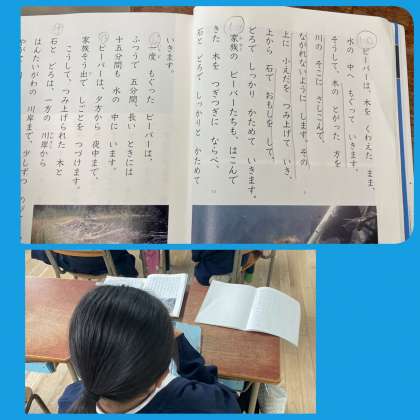 ビーバーは、木を くわえた まま、
水の 中へ もぐって いきます。
そうして、木の とがった 方を
川の そこに さしこんで、
ながれないように します。その
上に 小えだを つみ上げて いき、
上から 石で おもしを して、
どろで しっかり かためて いきます。
家族の ビーバーたちも、はこんで
きた 木を つぎつぎに ならべ、
石と どろで しっかりと かためて
いきます。
一度 もぐった ビーバーは、
ふつうで 五分間、長い ときには
十五分間も 水の 中に います。
ビーバーは、夕方から 夜中まで、
家族そう出で しごとを つづけます。
こうして、つみ上げられた 木と
石と どろは、一方の 川岸から
はんたいがわの 川岸まで、少しずつ